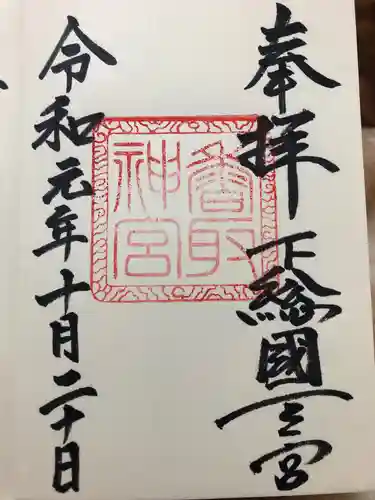 奉拝 下総國一之宮
香取神宮
令和元年十月二十日